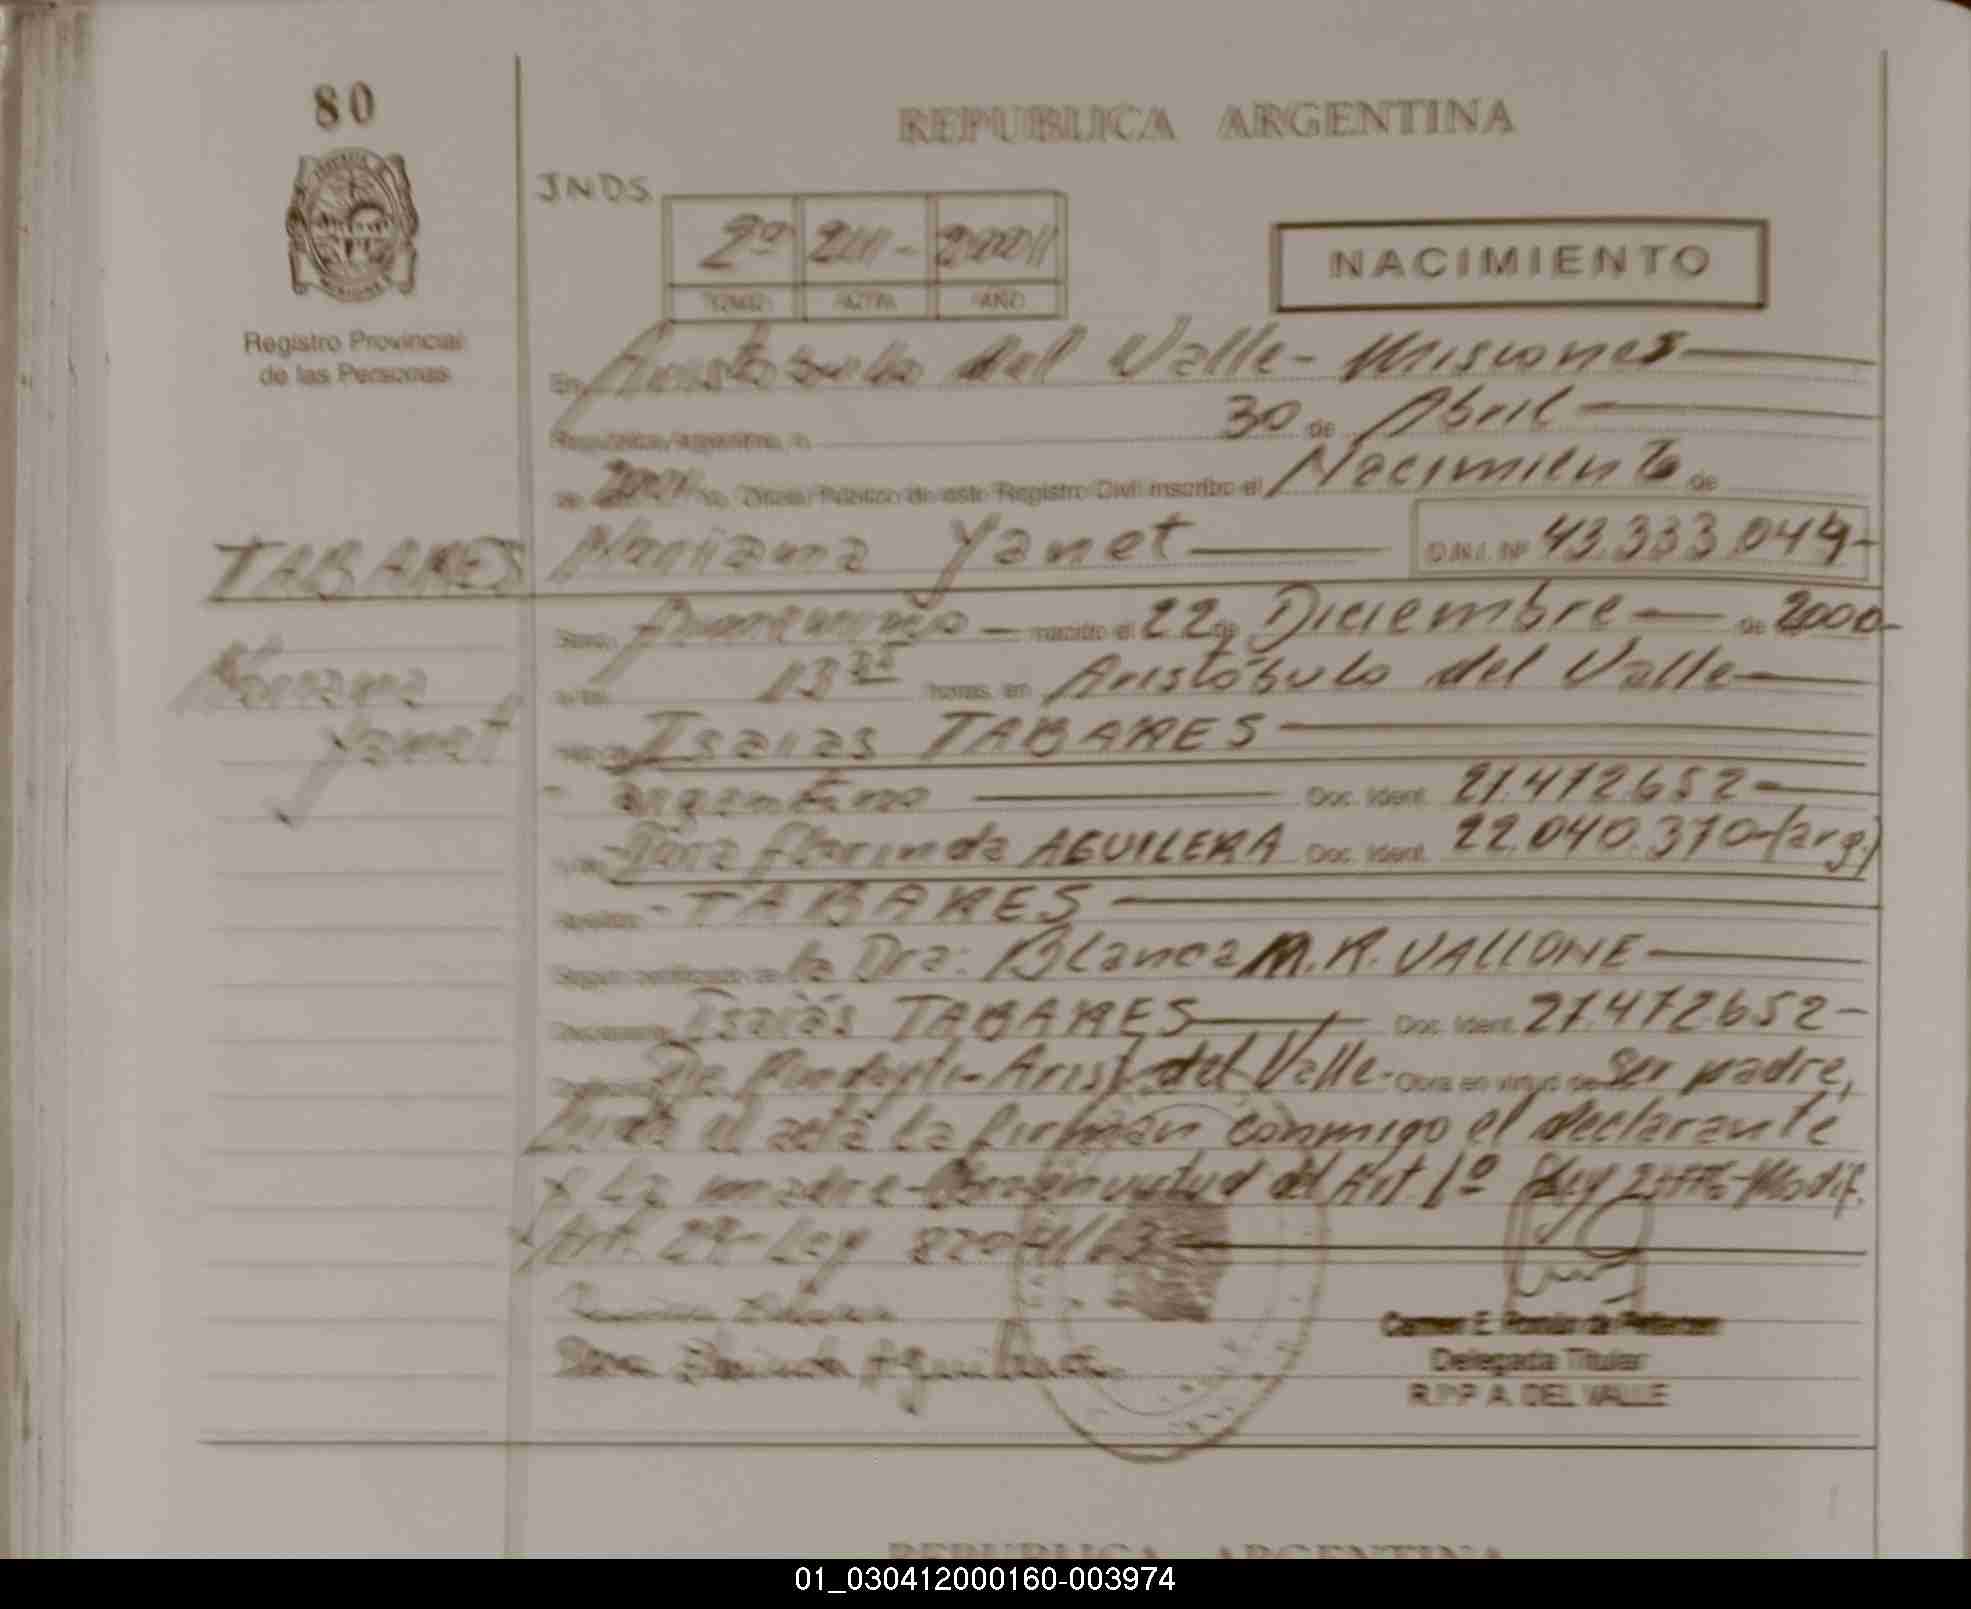 80
REPUBLICA ARGENTINA
JNDS.
2º 211- 2001
TOMO ACTA AÑO
NACIMIENTO
Registro Provincial
de las Personas
En Aristóbulo del Valle - Misiones
República Argentina, a 30 de Abril
de 2001 Yo, Oficial Público de este Registro Civil inscribo el Nacimiento de
TABARES Mariana Yanet D.N.I. Nº 43.333.044-
Sexo femenino nacido el 22 de Diciembre de 2000-
Mariana a las 13 horas, en Aristóbulo del Valle
Yanet Isaias TABARES
argentino Doc. Ident. 21.472.652-
y de Florinda AGUILERA Doc. Ident. 22.040.370-(arg.)
Apellido - TABARES
Según certificado de la Dra: Blanca M. R. VALLONE
Declarante Isaías TABARES Doc. Ident. 21.472.652-
Arist. del Valle- Obra en virtud de Ser padre,
el acta la firman conmigo el declarante
y la madre - en virtud del Art. 1º Ley Modif.
Art. 2º- Ley 8204/63-
Aguilera
Carmen E. Román de
Delegada Titular
R.P.P A. DEL VALLE
REPUBLICA ARGENTINA
01_030412000160-003974